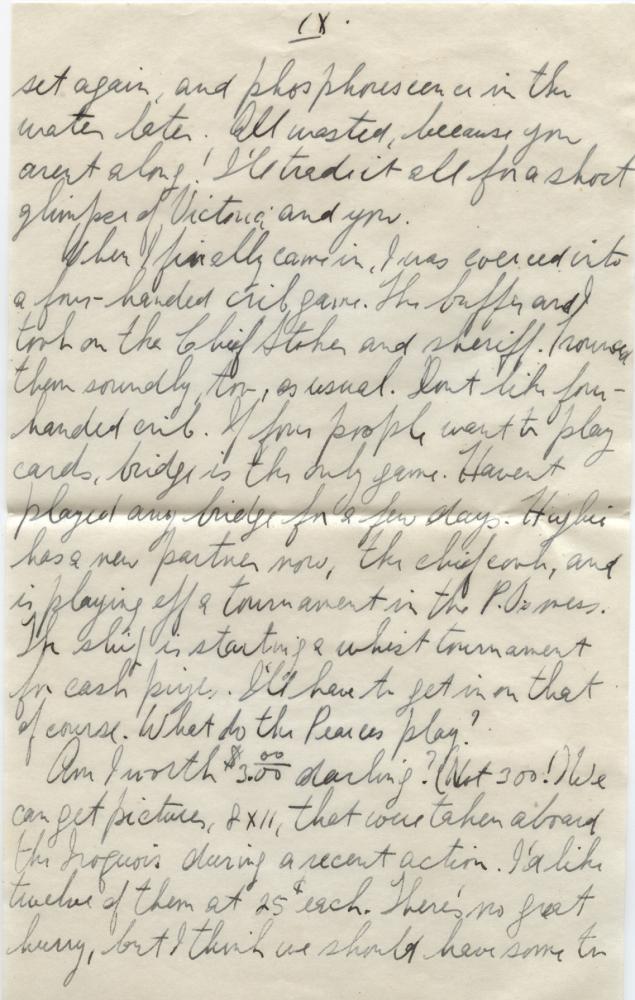 IX.
set again, and phosphorescence in the
water later. All wasted, because you
aren't along! I'll trade it all for a short
glimpse of Victoria and you.
When I finally came in, I was coerced into
a four-handed crib game. The buffer and I
took on the Chief Stoker and sheriff. Trounced
them soundly, too, as usual. Don't like four-
handed crib. If four people want to play
cards, bridge is the only game. Haven't
played any bridge for a few days. Hughie
has a new partner now, the chief cook, and
is playing off a tournament in the P.O's mess.
The ship is starting a whist tournament
for cash prizes. I'll have to get in on that
of course. What do the Pearces play?
Am I worth $3.00 darling? (Not 300!) We
can get pictures, 8 x 11, that were taken aboard
the Iroquois during a recent action. I'd like
twelve of them at 25¢ each. There's no great
hurry, but I think we should have some to